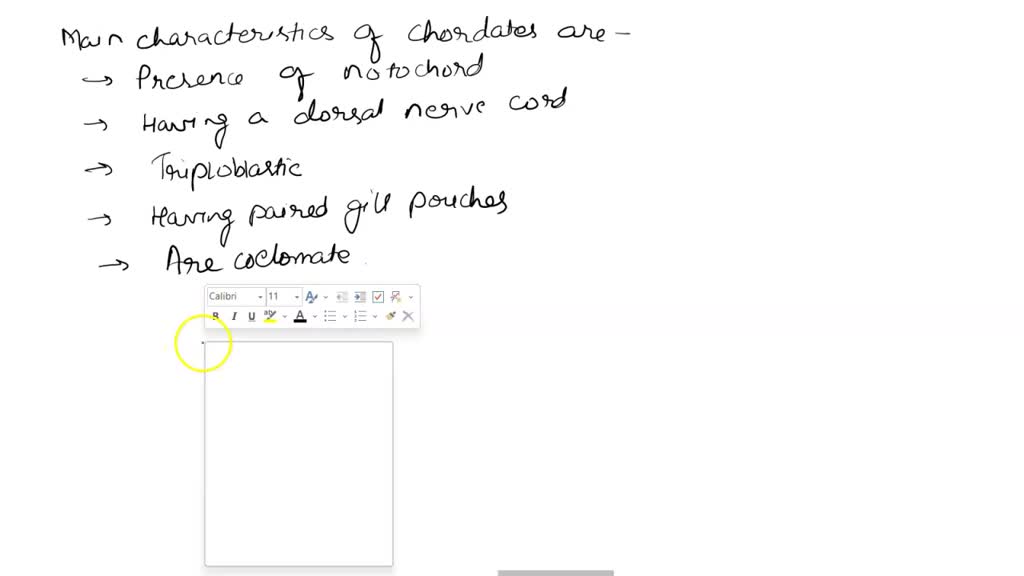 Main characteristics of chordates are -
→ Presence of notochord
→ Having a dorsal nerve cord
→ Triploblastic
→ Having paired gill pouches
→ Are coelomate
Calibri 11 A
B I U aby A